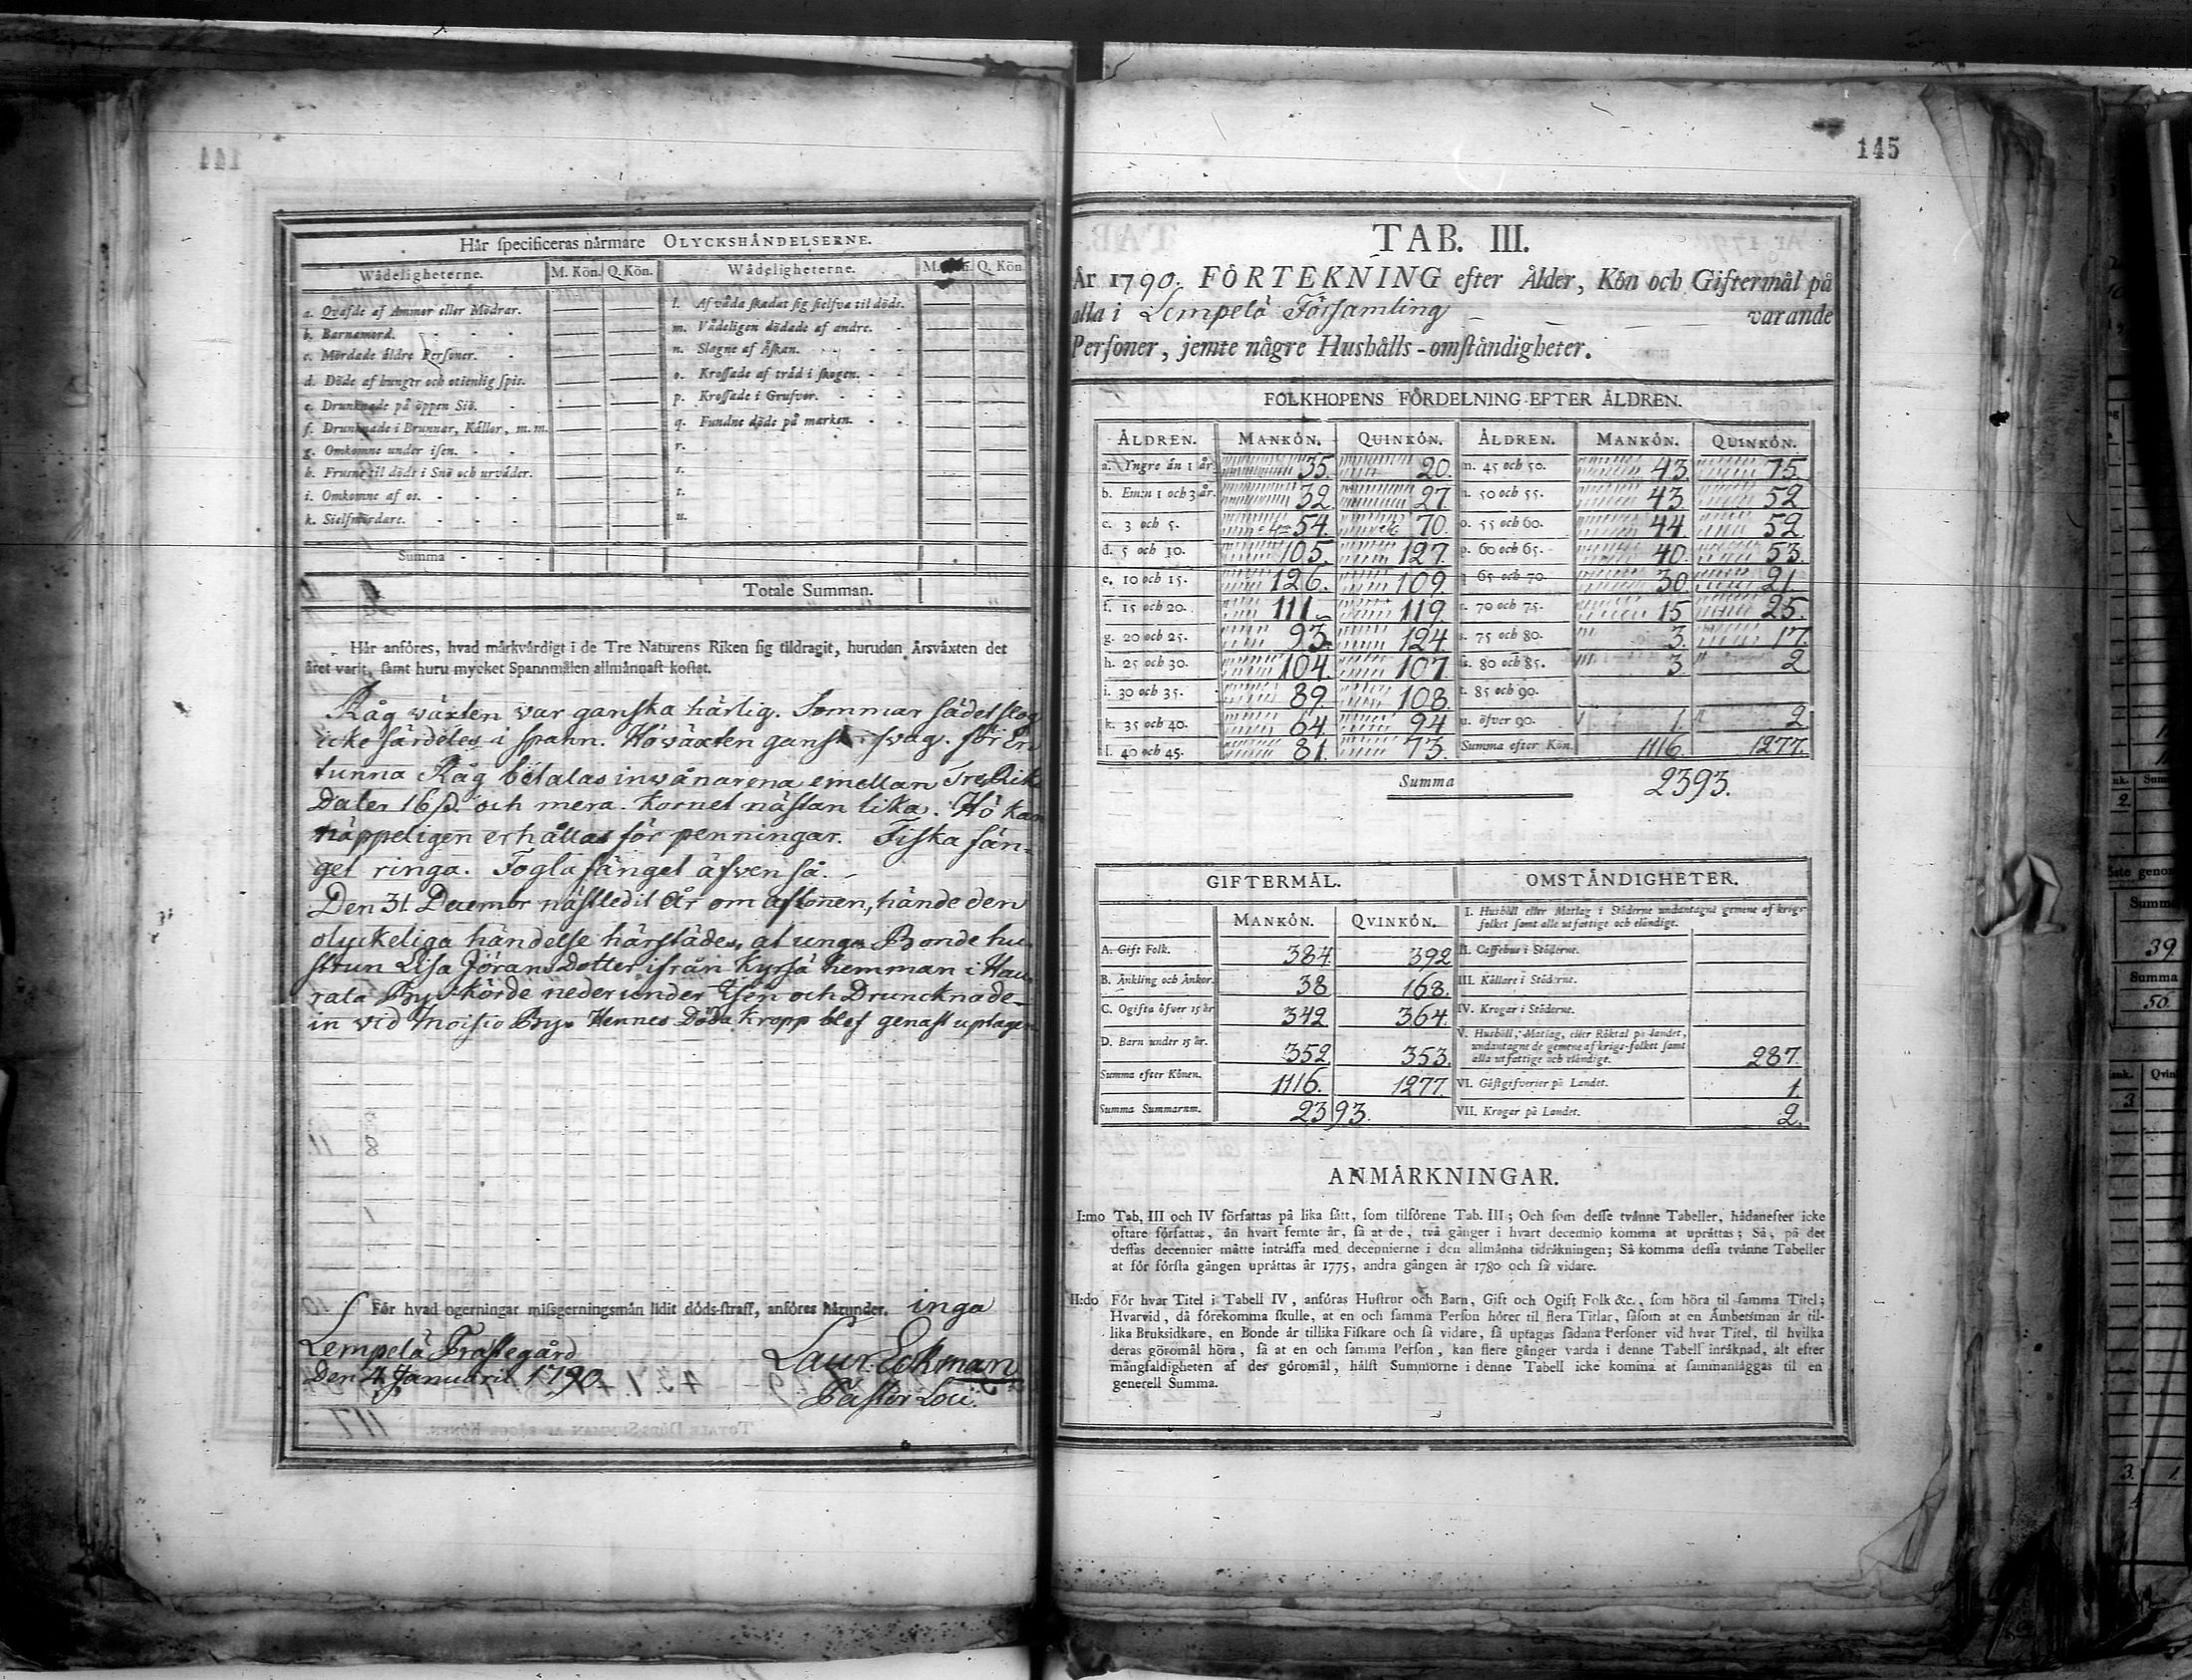 145
Hår specificeras nårmare OLYCKSHÅNDELSERNE.
Wådeligheterne. M. Kön. Q. Kön. Wådeligheterne. Q. Kön
a. Qvafde af Ammor eller Mödrar.
b. Barnamord.
c. Mördade åldre Personer.
d. Döde af hunger och otienlig spis.
e. Drunknade på öppen Siö.
f. Drunknade i Brunnar, Kållor, m. m.
g. Omkomne under isen.
h. Frusne til döds i Snö och urvåder.
i. Omkomne af os.
k. Sielfmördare.
Summa
l. Af våda skadat sig sielfva til döds.
m. Vådeligen dödade af andre.
n. Slagne af Åskan.
o. Krossade af tråd i skogen.
p. Krossade i Grufvor.
q. Fundne döde på marken.
r.
s.
t.
u.
Totale Summan.
Hår anföres, hvad mårkvårdigt i de Tre Naturens Riken sig tildragit, hurudan Årsvåxten det
året varit, samt huru mycket Spannmålen allmånnast kostat.
Råg växten var ganska härlig. Sommar sädet slog
icke särdeles i spann. Höväxten ganska svag. för En
tunna Råg betalas inwånarena emellan Tre Riks
Daler 16 ß och mera. Kornet nästan lika. Hö kan
näppeligen erhållas för penningar. Fiska fän-
get ringa. Fogla fänget äfven så.
Den 31 Decembr nästledit År om aftonen, hände den
olyckeliga händelse härstädes, at unga Bonde hu
strun Lisa Jörans Dotter ifrån Kyrsä hemman i Hau
rala By, körde neder under Isen och Druncknade
in vid Moisio By. Hennes Döda Kropp blef genast uptagen
För hvad ogerningar missgerningsmån lidit döds-straff, anföres hårunder. inga
Lempelä Prästegård
Den 4 Januarii 1790.
Laur. Eckman
Pastor Loci.
TAB. III.
År 1790. FÖRTEKNING efter Ålder, Kön och Giftermål på
alla i Lempelä Församling varande
Personer, jemte någre Hushålls-omståndigheter.
FOLKHOPENS FÖRDELNING EFTER ÅLDREN.
ÅLDREN. MANKÖN. QUINKÖN. ÅLDREN. MANKÖN. QUINKÖN.
a. Yngre ån 1 år 35 20 m. 45 och 50. 43. 75.
b. Em:n 1 och 3 år. 32. 27. n. 50 och 55. 43. 52
c. 3 och 5. 54. 70. o. 55 och 60. 44. 52
d. 5 och 10. 105. 127. p. 60 och 65. 40. 53.
e. 10 och 15. 126. 109. q. 65 och 70. 30. 21.
f. 15 och 20. 111. 119. r. 70 och 75. 15 25.
g. 20 och 25. 93. 124 s. 75 och 80. 3. 17.
h. 25 och 30. 104. 107. 80 och 85. 3. 2
i. 30 och 35. 89. 108. t. 85 och 90.
k. 35 och 40. 64. 94 u. öfver 90. 1. 2
l. 40 och 45. 81. 73. Summa efter Kön. 1116. 1277.
Summa 2393.
GIFTERMÅL. OMSTÅNDIGHETER.
MANKÖN. QVINKÖN.
A. Gift Folk. 384 392
B. Ånkling och Ånkor. 38 168.
C. Ogifta öfver 15 år 342 364.
D. Barn under 15 år. 352 353.
Summa efter Könen. 1116. 1277.
Summa Summarum. 2393.
I. Hushåll eller Matlag i Ståderne undantagne gemene af krigs-
folket samt alle utfattige och elåndige.
II. Caffehus i Ståderne.
III. Kållare i Ståderne.
IV. Krogar i Ståderne.
V. Hushåll, Matlag, eller Röktal på landet,
undantagne de gemene af krigs-folket samt
alla utfattige och elåndige. 287.
VI. Gåstgifverier på Landet. 1.
VII. Krogar på Landet. 2.
ANMÅRKNINGAR.
I:mo Tab. III och IV författas på lika sått, som tilförene Tab. III; Och som desse tvånne Tabeller, hådanefter icke
oftare författas, ån hvart femte år, så at de, två gånger i hvart decennio komma at upråttas; Så, på det
dessas decennier måtte intråffa med decennierne i den allmånna tidråkningen; Så komma dessa tvånne Tabeller
at för första gången upråttas år 1775, andra gången år 1780 och så vidare.
II:do För hvar Titel i Tabell IV, anföras Hustrur och Barn, Gift och Ogift Folk &c., som höra til samma Titel;
Hvarvid, då förekomma skulle, at en och samma Person hörer til flera Titlar, såsom at en Åmbetsman år til-
lika Bruksidkare, en Bonde år tillika Fiskare och så vidare, så uptagas sådana Personer vid hvar Titel, til hvilka
deras göromål höra, så at en och samma Person, kan flere gånger varda i denne Tabell inråknad, alt efter
mångfaldigheten af des göromål, hålst Summorne i denne Tabell icke komma at sammanlåggas til en
generell Summa.
Summa
39.
Summa
50.